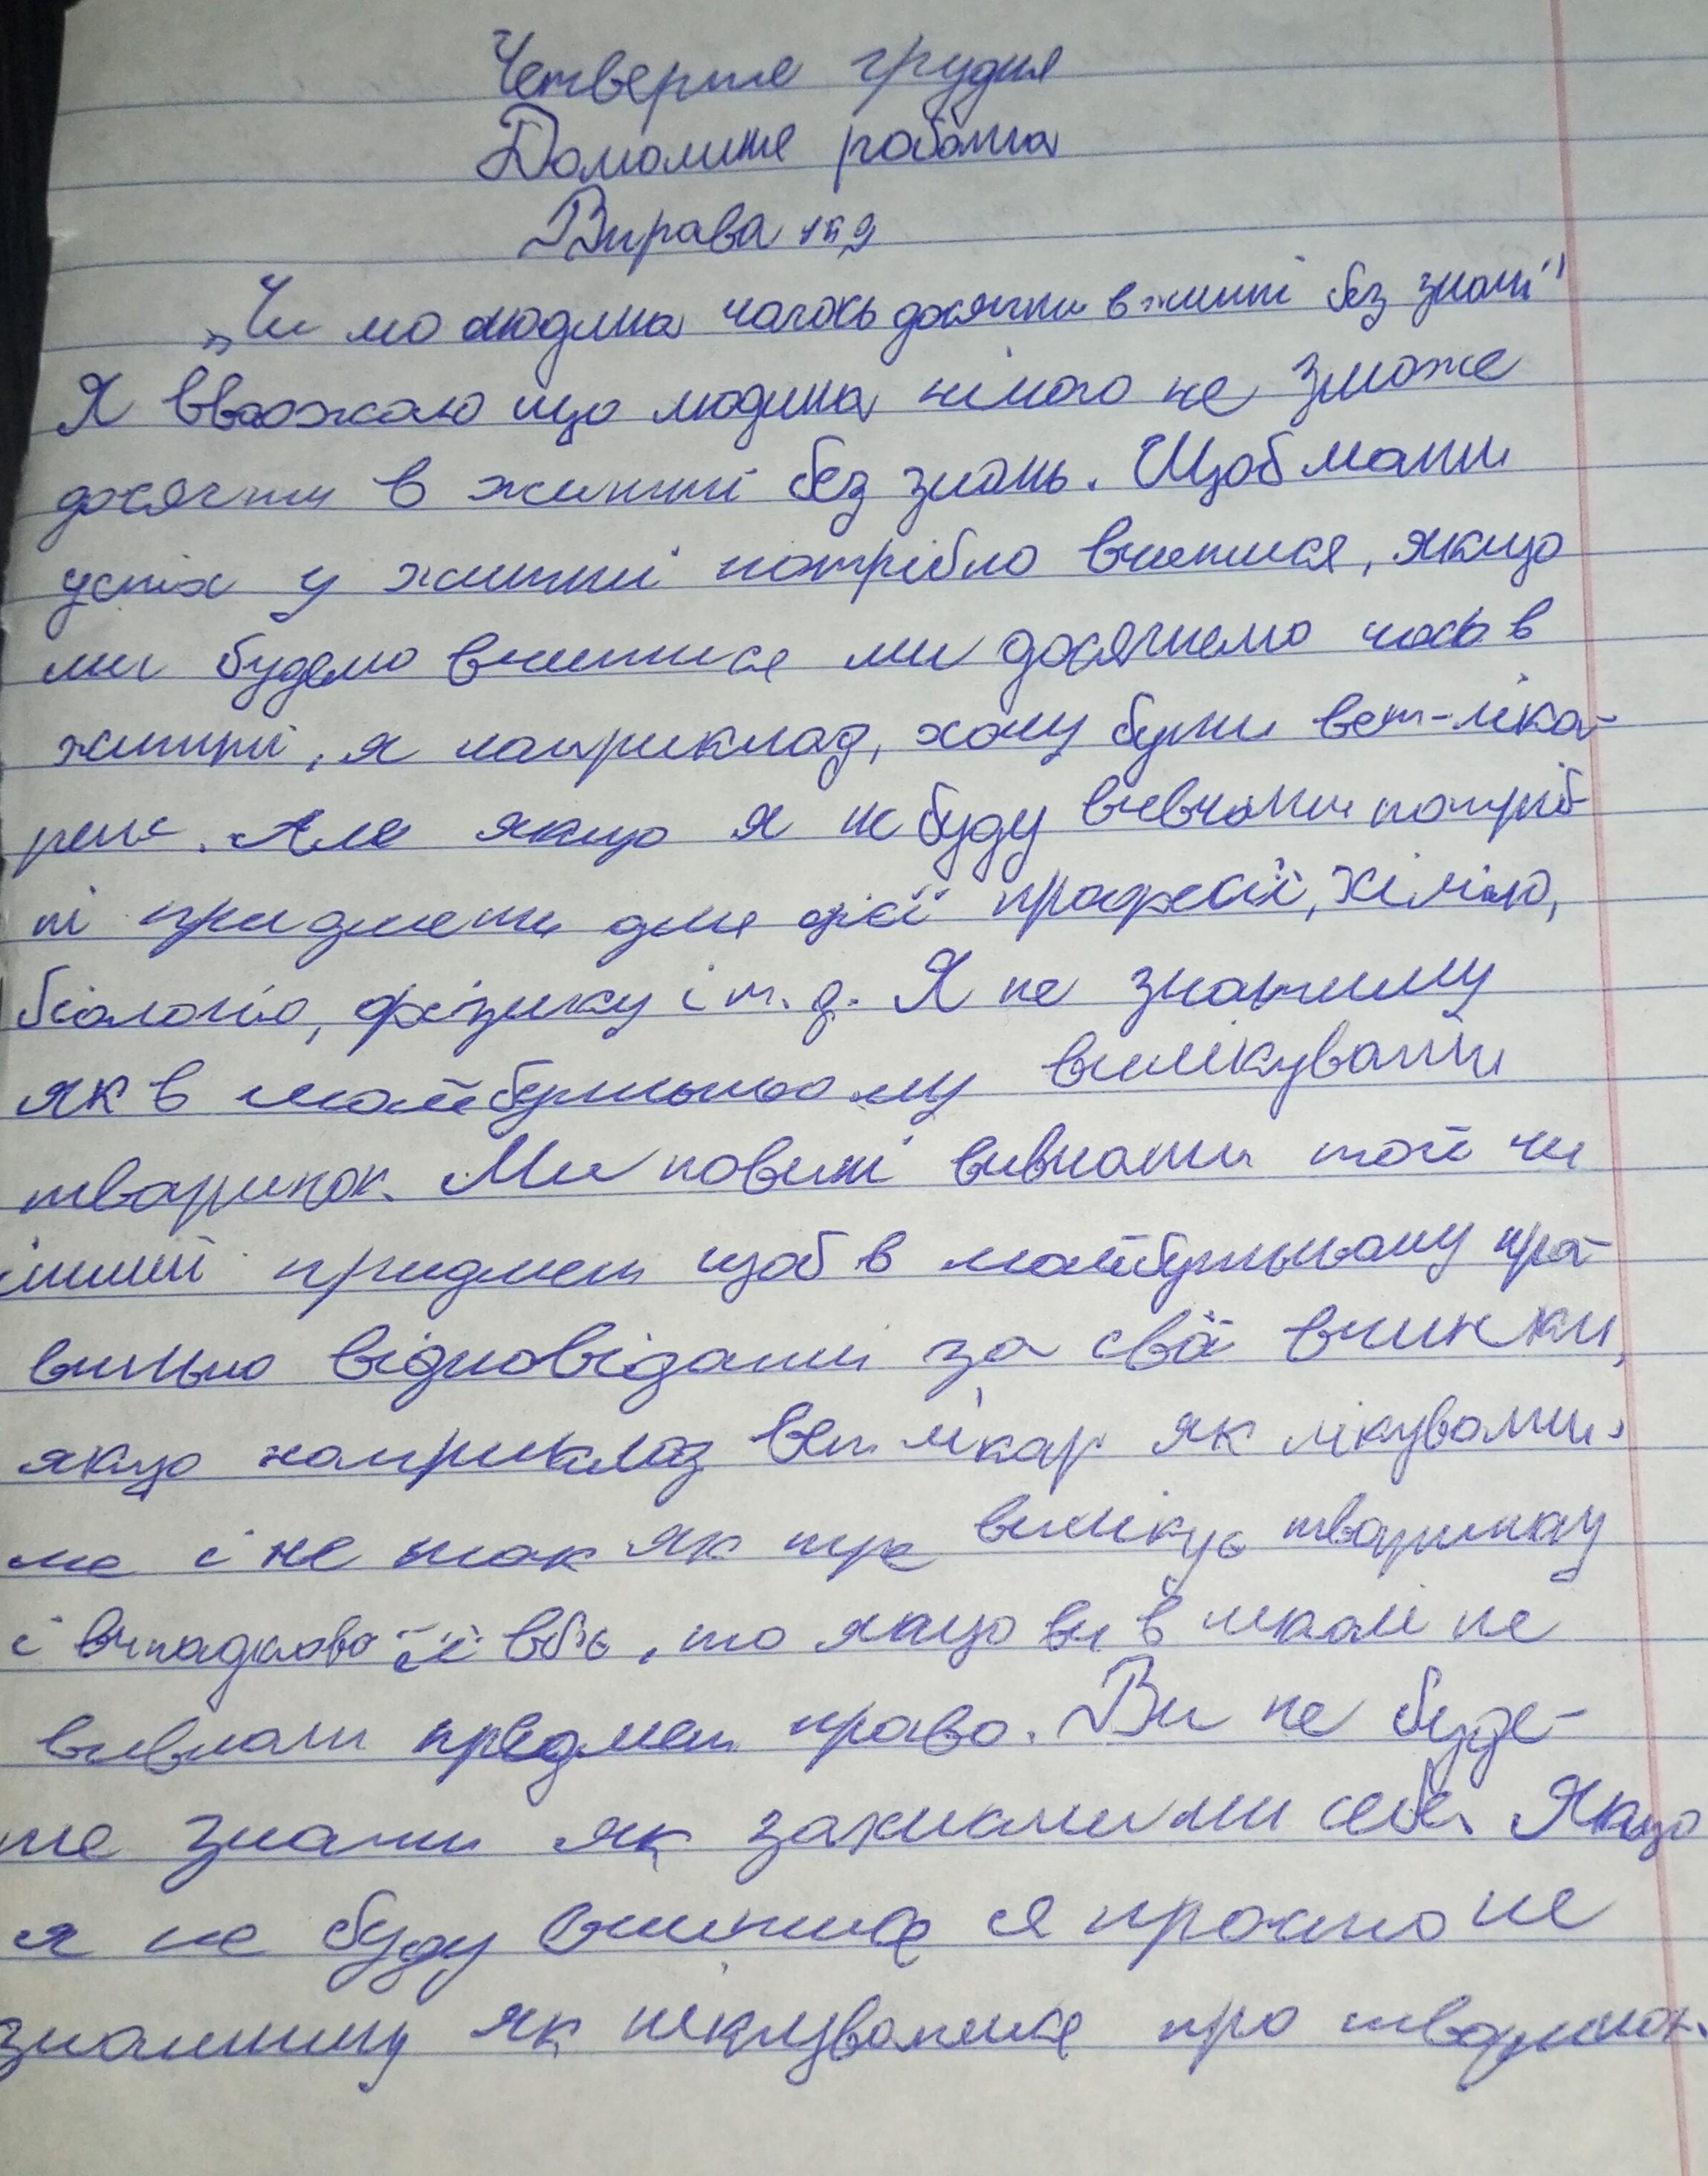 Четверте грудня
Домашнє робота
Вправа №9
„Чи мо людина чогось досягти в житті без знань"
Я вважаю що людина нічого не зможе
досягти в житті без знань. Щоб мати
успіх у житті потрібно вчитися, якщо
ми будемо вчитися ми досягнемо чогсь в
житті, я наприклад, хочу бути вет-ліка-
рем. Але якщо я не буду вивчати потріб-
ні предмети для цієї професії, хімію,
біологію, фізику і т. д. Я не знатиму
як в майбутньому вилікувати
тваринок. Ми повині вивчати той чи
інший предмет щоб в майбутньому пра-
вильно відповідати за свої вчинки,
якщо наприклад вет лікар як лікувати-
ме і не так як тре вилікує тваринку
і випадково її вбє, то якщо ви в школі не
вивчали предмет право. Ви не буде-
те знати як захистити себе. Якщо
я не буду вчитися я просто не
знатиму як піклуватися про тваринок.